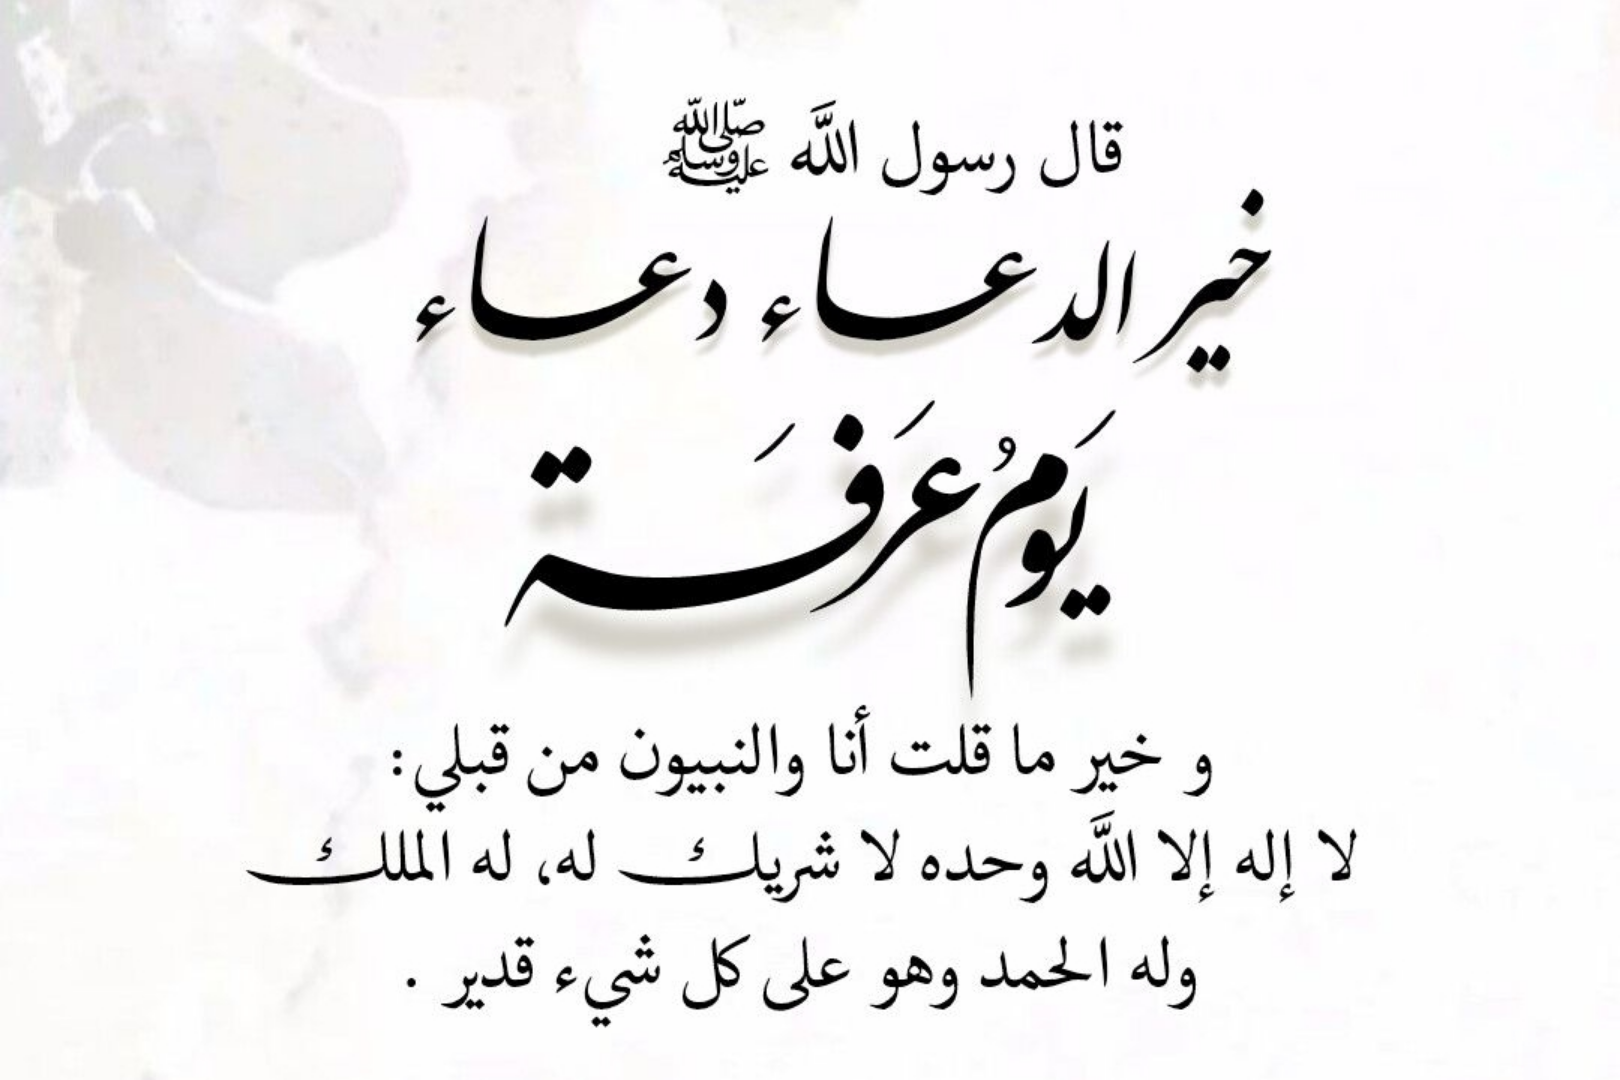 قال رسول اللَّه ﷺ
خير الدعاء دعاء
يَومُ عَرفَة
و خير ما قلت أنا والنبيون من قبلي:
لا إله إلا اللَّه وحده لا شريك له، له الملك
وله الحمد وهو على كل شيء قدير .